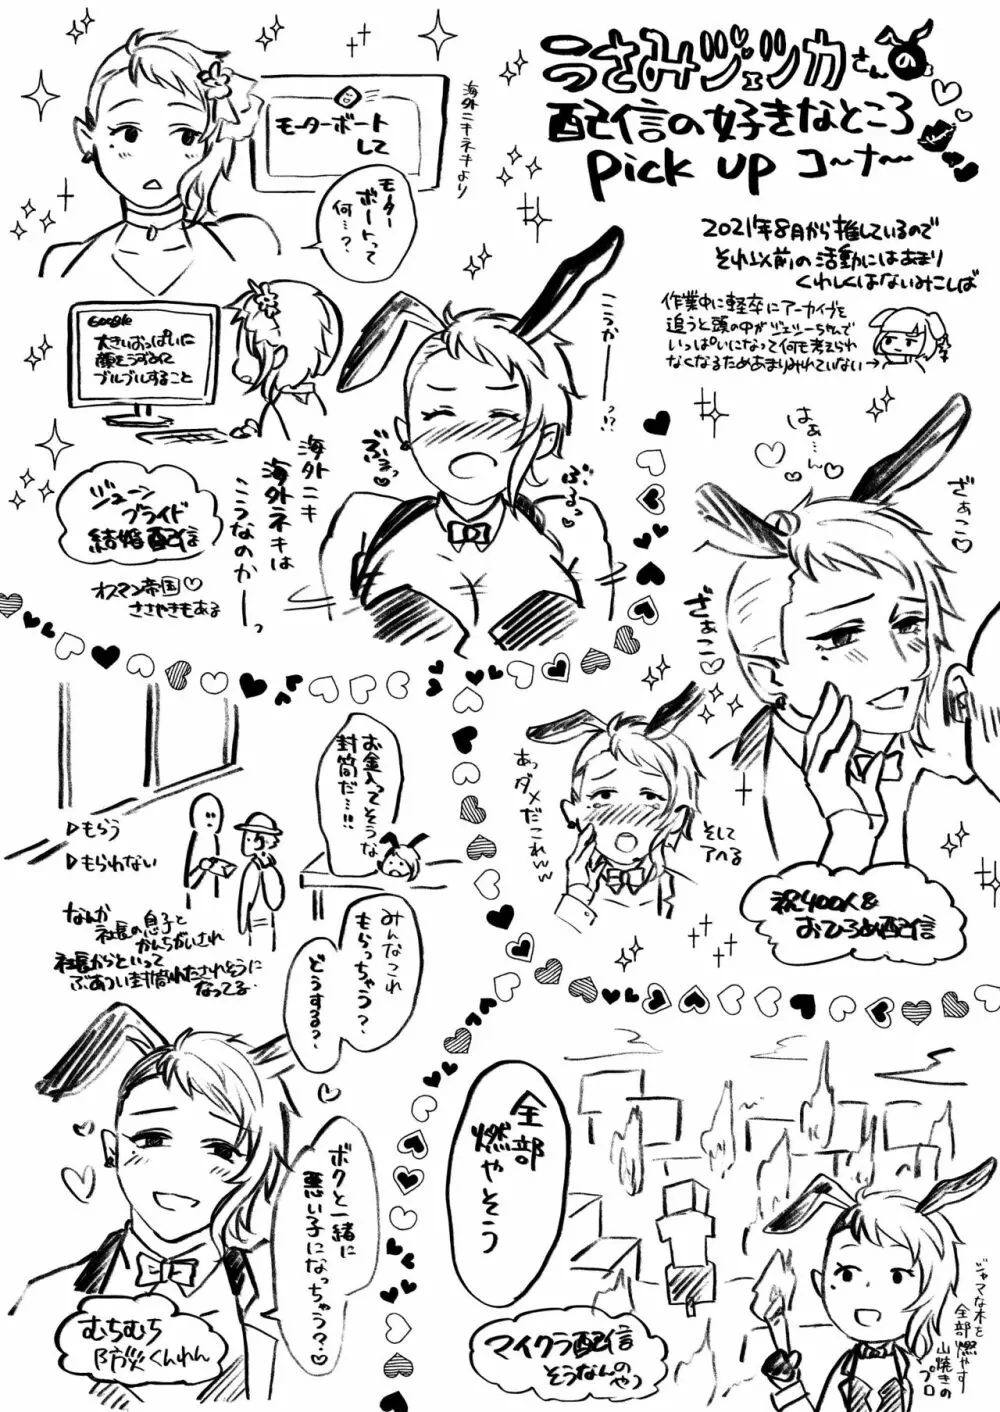 うさみジェッカさんの
配信の好きなところ
pick up コーナー
2021年8月から推しているので
それ以前の活動にはあまり
くわしくはないみこしば
作業中に軽卒にアーカイブを
追うと頭の中がジェッカちゃんで
いっぱいになって何も考えられ
なくなるためあまりみれていない→
海外ニキネキより
モーターボート
して
モーター
ボートって
何…?
Google
大きいおっぱいに
顔をうずめて
ブルブルすること
ジューン
ブライド
結婚配信
オスマン帝国♡
ささやきもある
海外ニキ
海外ネキは
こうなのかーっ
こうかーっ!?
ぶるっ
はぁ…ん
ざぁこ♡
ざぁこ♡
あっ
ダメだこれww
そして
アへる
祝400人&
おひろめ配信
▷もらう
▷もらわない
なんか
社長の息子と
かんちがいされ
社長からといって
ぶあつい封筒わたされそうに
なってる
お金入ってそうな
封筒だ…!!
みんなこれ
もらっちゃう?
どうする?
ボクと一緒に
悪い子になっちゃう?♡
むちむち
防災くんれん
全部
燃やそう
マイクラ配信
そうなんのやつ
ジャマな木を
全部燃やす
山焼きの
プロ